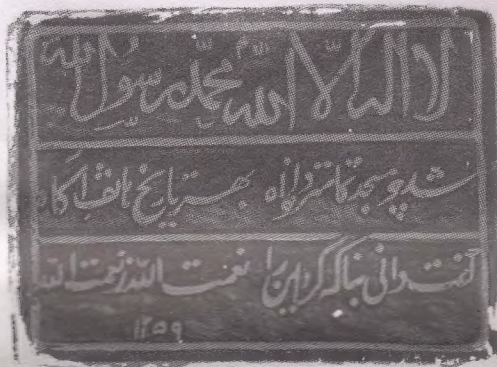 لا اله الا الله محمد رسول الله
شد چو مسجد تمام تر دانی بهر تاریخ هاتف آگاه
گفت دانی بنا که کرد این را نعمت الله نعمت الله
۱۲۵۹